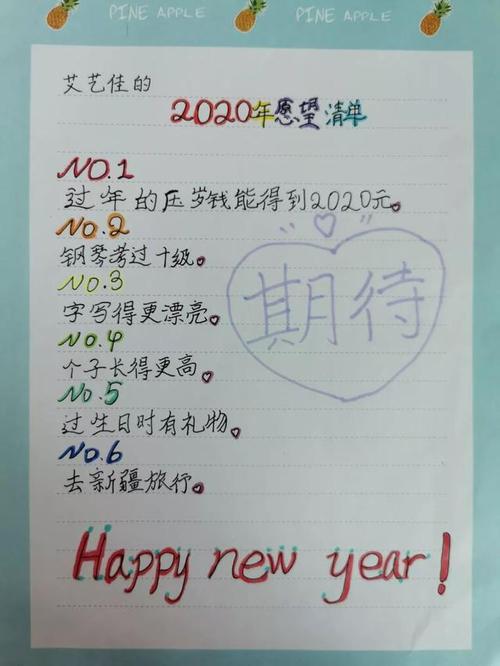 PINE APPLE
PINE APPLE
艾艺佳的
2020年愿望清单
NO.1
过年的压岁钱能得到2020元。
NO.2
钢琴考过十级。
NO.3
字写得更漂亮。
NO.4
个子长得更高。
NO.5
过生日时有礼物。
NO.6
去新疆旅行。
期待
Happy new year!